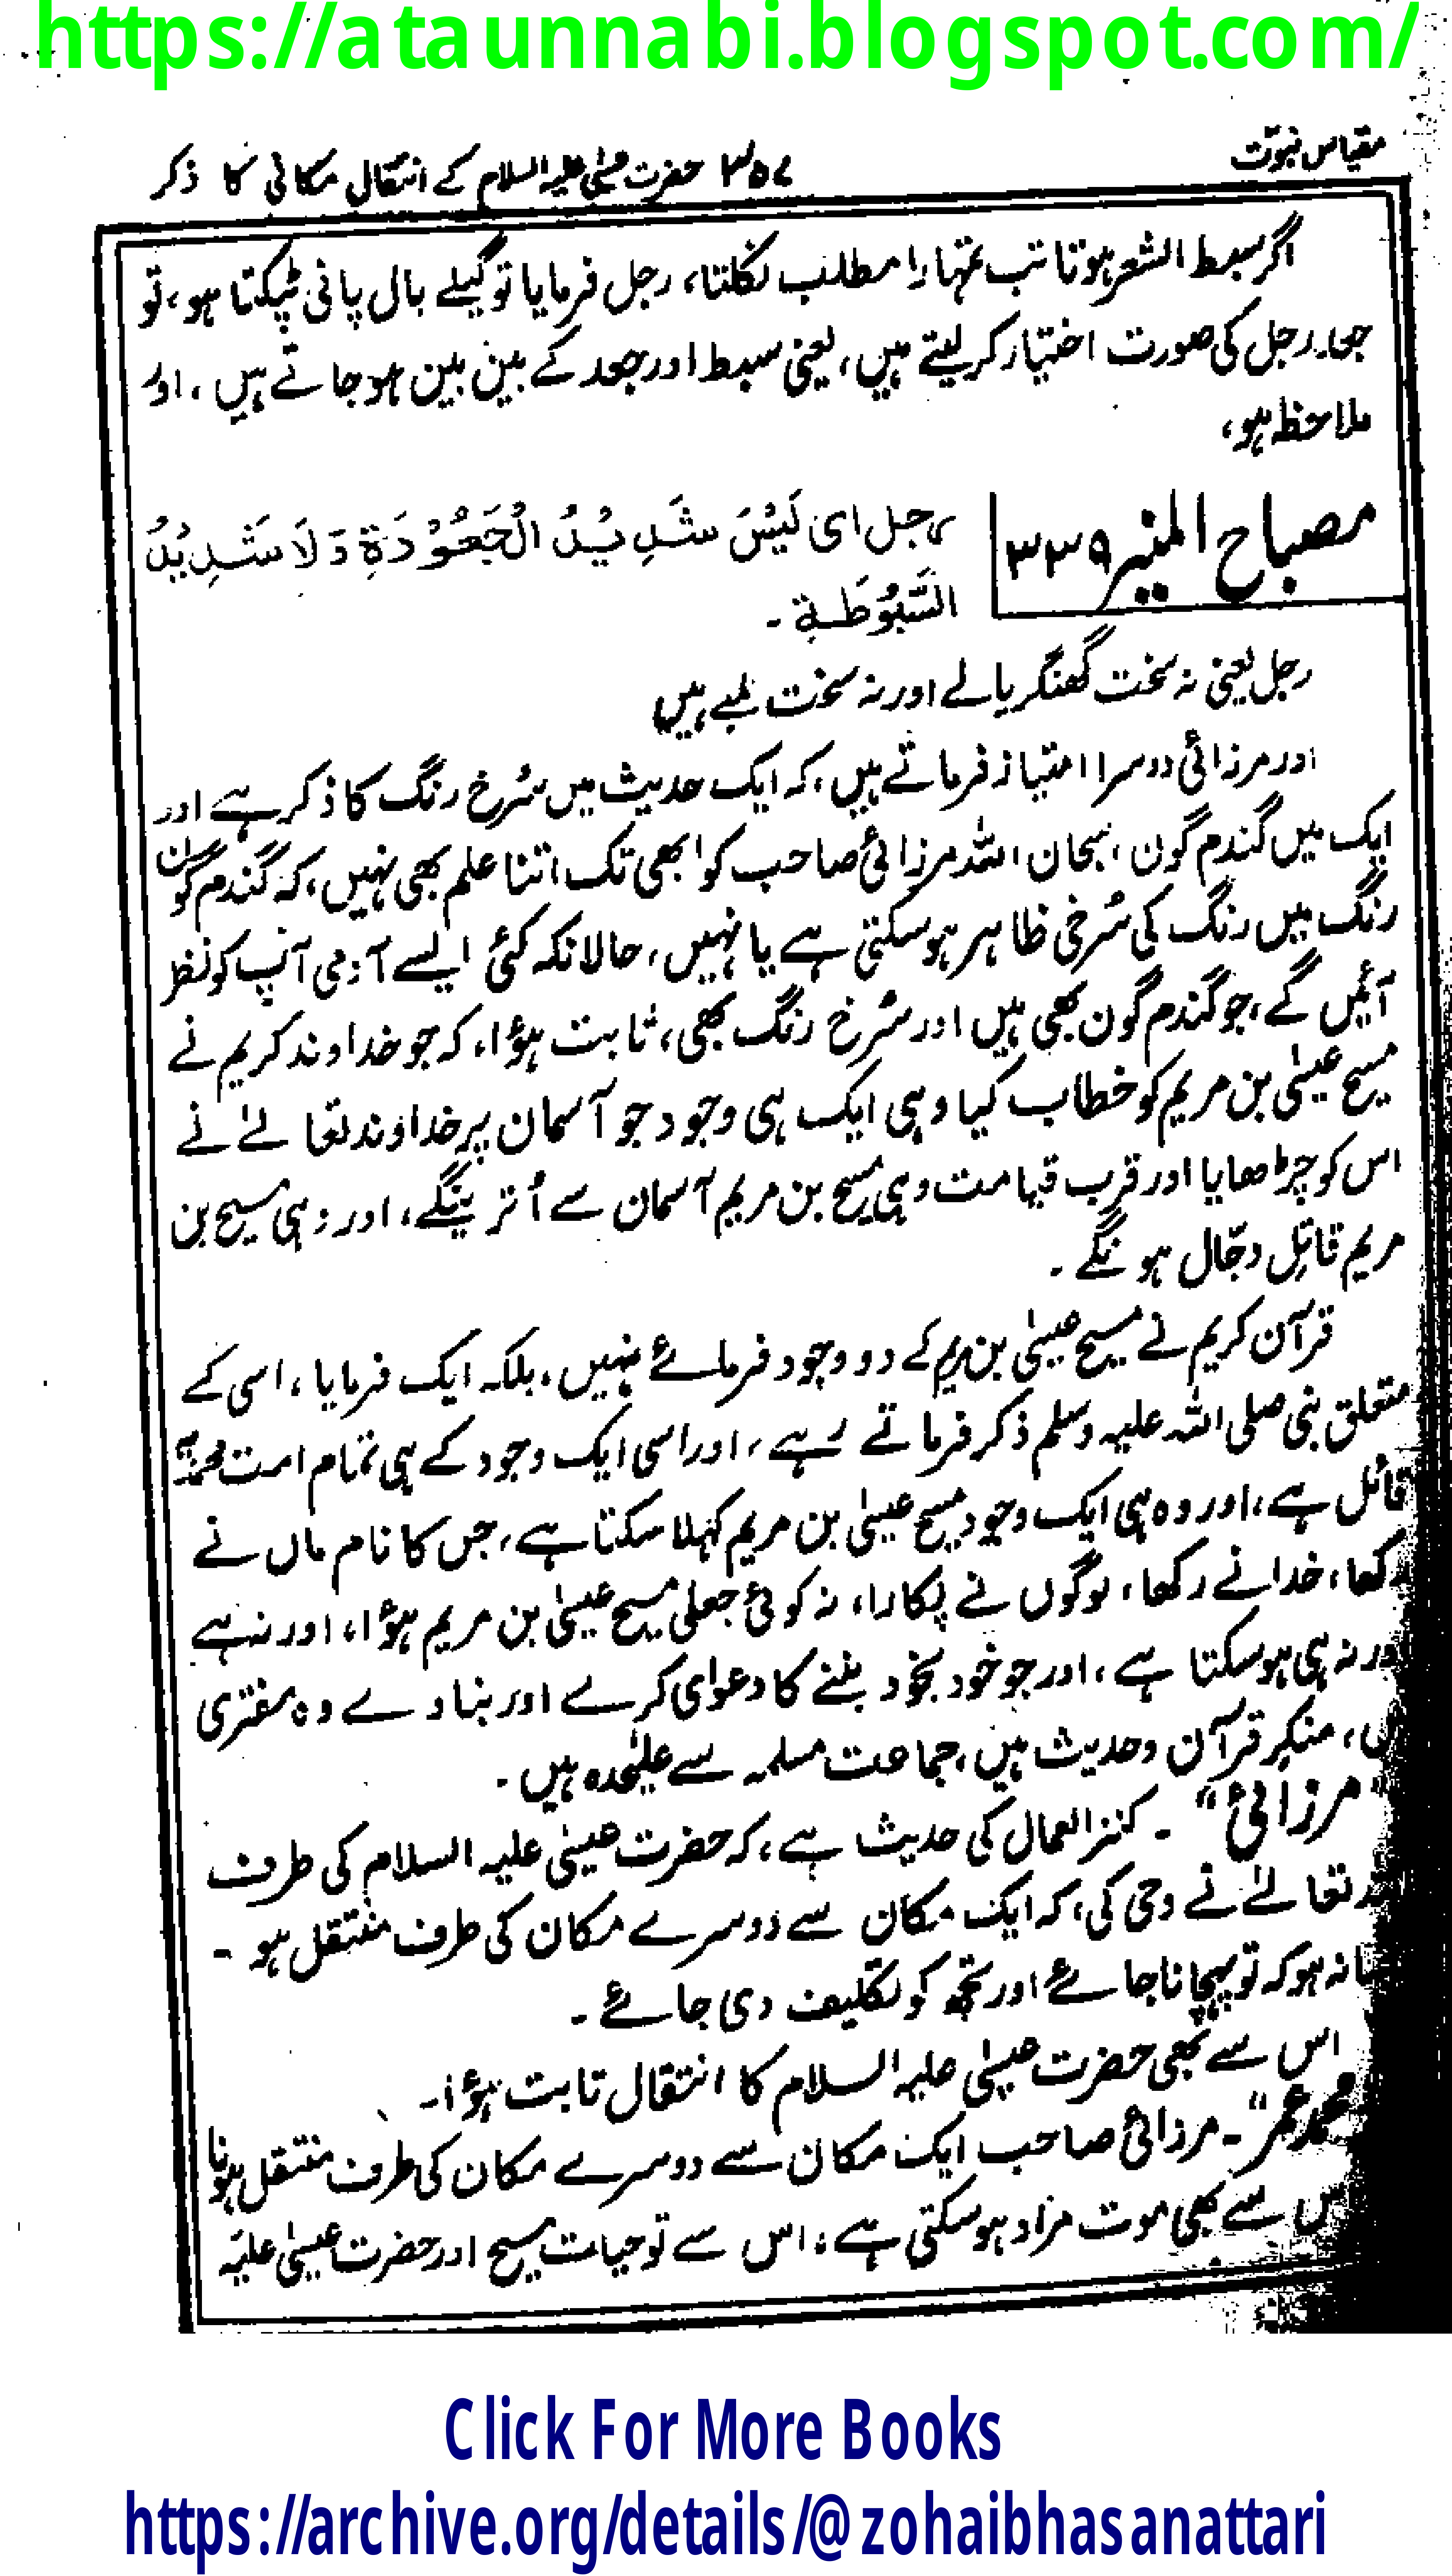 https://ataunnabi.blogspot.com/
مقیاس نبوت
۳۵۷ حضرت عیسیٰ علیہ السلام کے انتقال مکانی کا ذکر
اگر سبط الشعر ہوتا تب تمہارا مطلب نکلتا، رجل فرمایا تو گیلے بال پانی ٹپکتا ہو، تو
رجل کی صورت اختیار کر لیتے ہیں، یعنی سبط اور جعد کے بین بین ہو جاتے ہیں، اور
ملاحظہ ہو،
مصباح المنیر ۳۳۹
رجل ای لَیْسَ شَدِیْدُ الْجَعُوْدَةِ وَلَا شَدِیْدُ
السَّبُوْطَةِ -
رجل یعنی نہ سخت گھنگریالے اور نہ سخت لمبے ہیں
اور مرزائی دوسرا امتیاز فرماتے ہیں، کہ ایک حدیث میں سُرخ رنگ کا ذکر ہے اور
ایک میں گندم گون، سبحان اللہ مرزائی صاحب کو ابھی تک اتنا علم بھی نہیں، کہ گندم گون
رنگ میں رنگ کی سُرخی ظاہر ہو سکتی ہے یا نہیں، حالانکہ کئی ایسے آدمی آپ کو نظر
آئیں گے، جو گندم گون بھی ہیں اور سُرخ رنگ بھی، ثابت ہؤا، کہ جو خداوند کریم نے
مسیح عیسیٰ بن مریم کو خطاب کیا وہی ایک ہی وجود جو آسمان پر خداوند تعالےٰ نے
اس کو چڑھایا اور قرب قیامت وہی مسیح بن مریم آسمان سے اُترینگے، اور وہی مسیح بن
مریم قاتِل دجّال ہونگے -
قرآن کریم نے مسیح عیسیٰ بن مریم کے دو وجود فرمائے نہیں، بلکہ ایک فرمایا، اسی کے
متعلق نبی صلی اللہ علیہ وسلم ذکر فرماتے رہے، اور اسی ایک وجود کے ہی تمام امت محمدیہ
قائل ہے، اور وہ ہی ایک وجود مسیح عیسیٰ بن مریم کہلا سکتا ہے، جس کا نام ماں نے
رکھا، خدا نے رکھا، لوگوں نے پکارا، نہ کوئی جعلی مسیح عیسیٰ بن مریم ہؤا، اور نہ ہے
اور نہ ہی ہو سکتا ہے، اور جو خود بخود بننے کا دعوٰی کرے اور بناوے وہ مفتری
ہیں، منکرِ قرآن و حدیث ہیں، جماعت مسلمہ سے علیٰحدہ ہیں -
"مرزائی" - کنزالعمال کی حدیث ہے، کہ حضرت عیسیٰ علیہ السلام کی طرف
تعالےٰ نے وحی کی، کہ ایک مکان سے دوسرے مکان کی طرف منتقل ہو -
نہ ہو کہ تو پہچانا جائے اور تجھ کو تکلیف دی جائے -
اس سے بھی حضرت عیسیٰ علیہ السلام کا انتقال ثابت ہؤا -
محمد عمر" - مرزائی صاحب ایک مکان سے دوسرے مکان کی طرف منتقل ہونا
اس سے بھی موت مراد ہو سکتی ہے، اس سے تو حیات مسیح اور حضرت عیسیٰ علیہ
Click For More Books
https://archive.org/details/@zohaibhasanattari